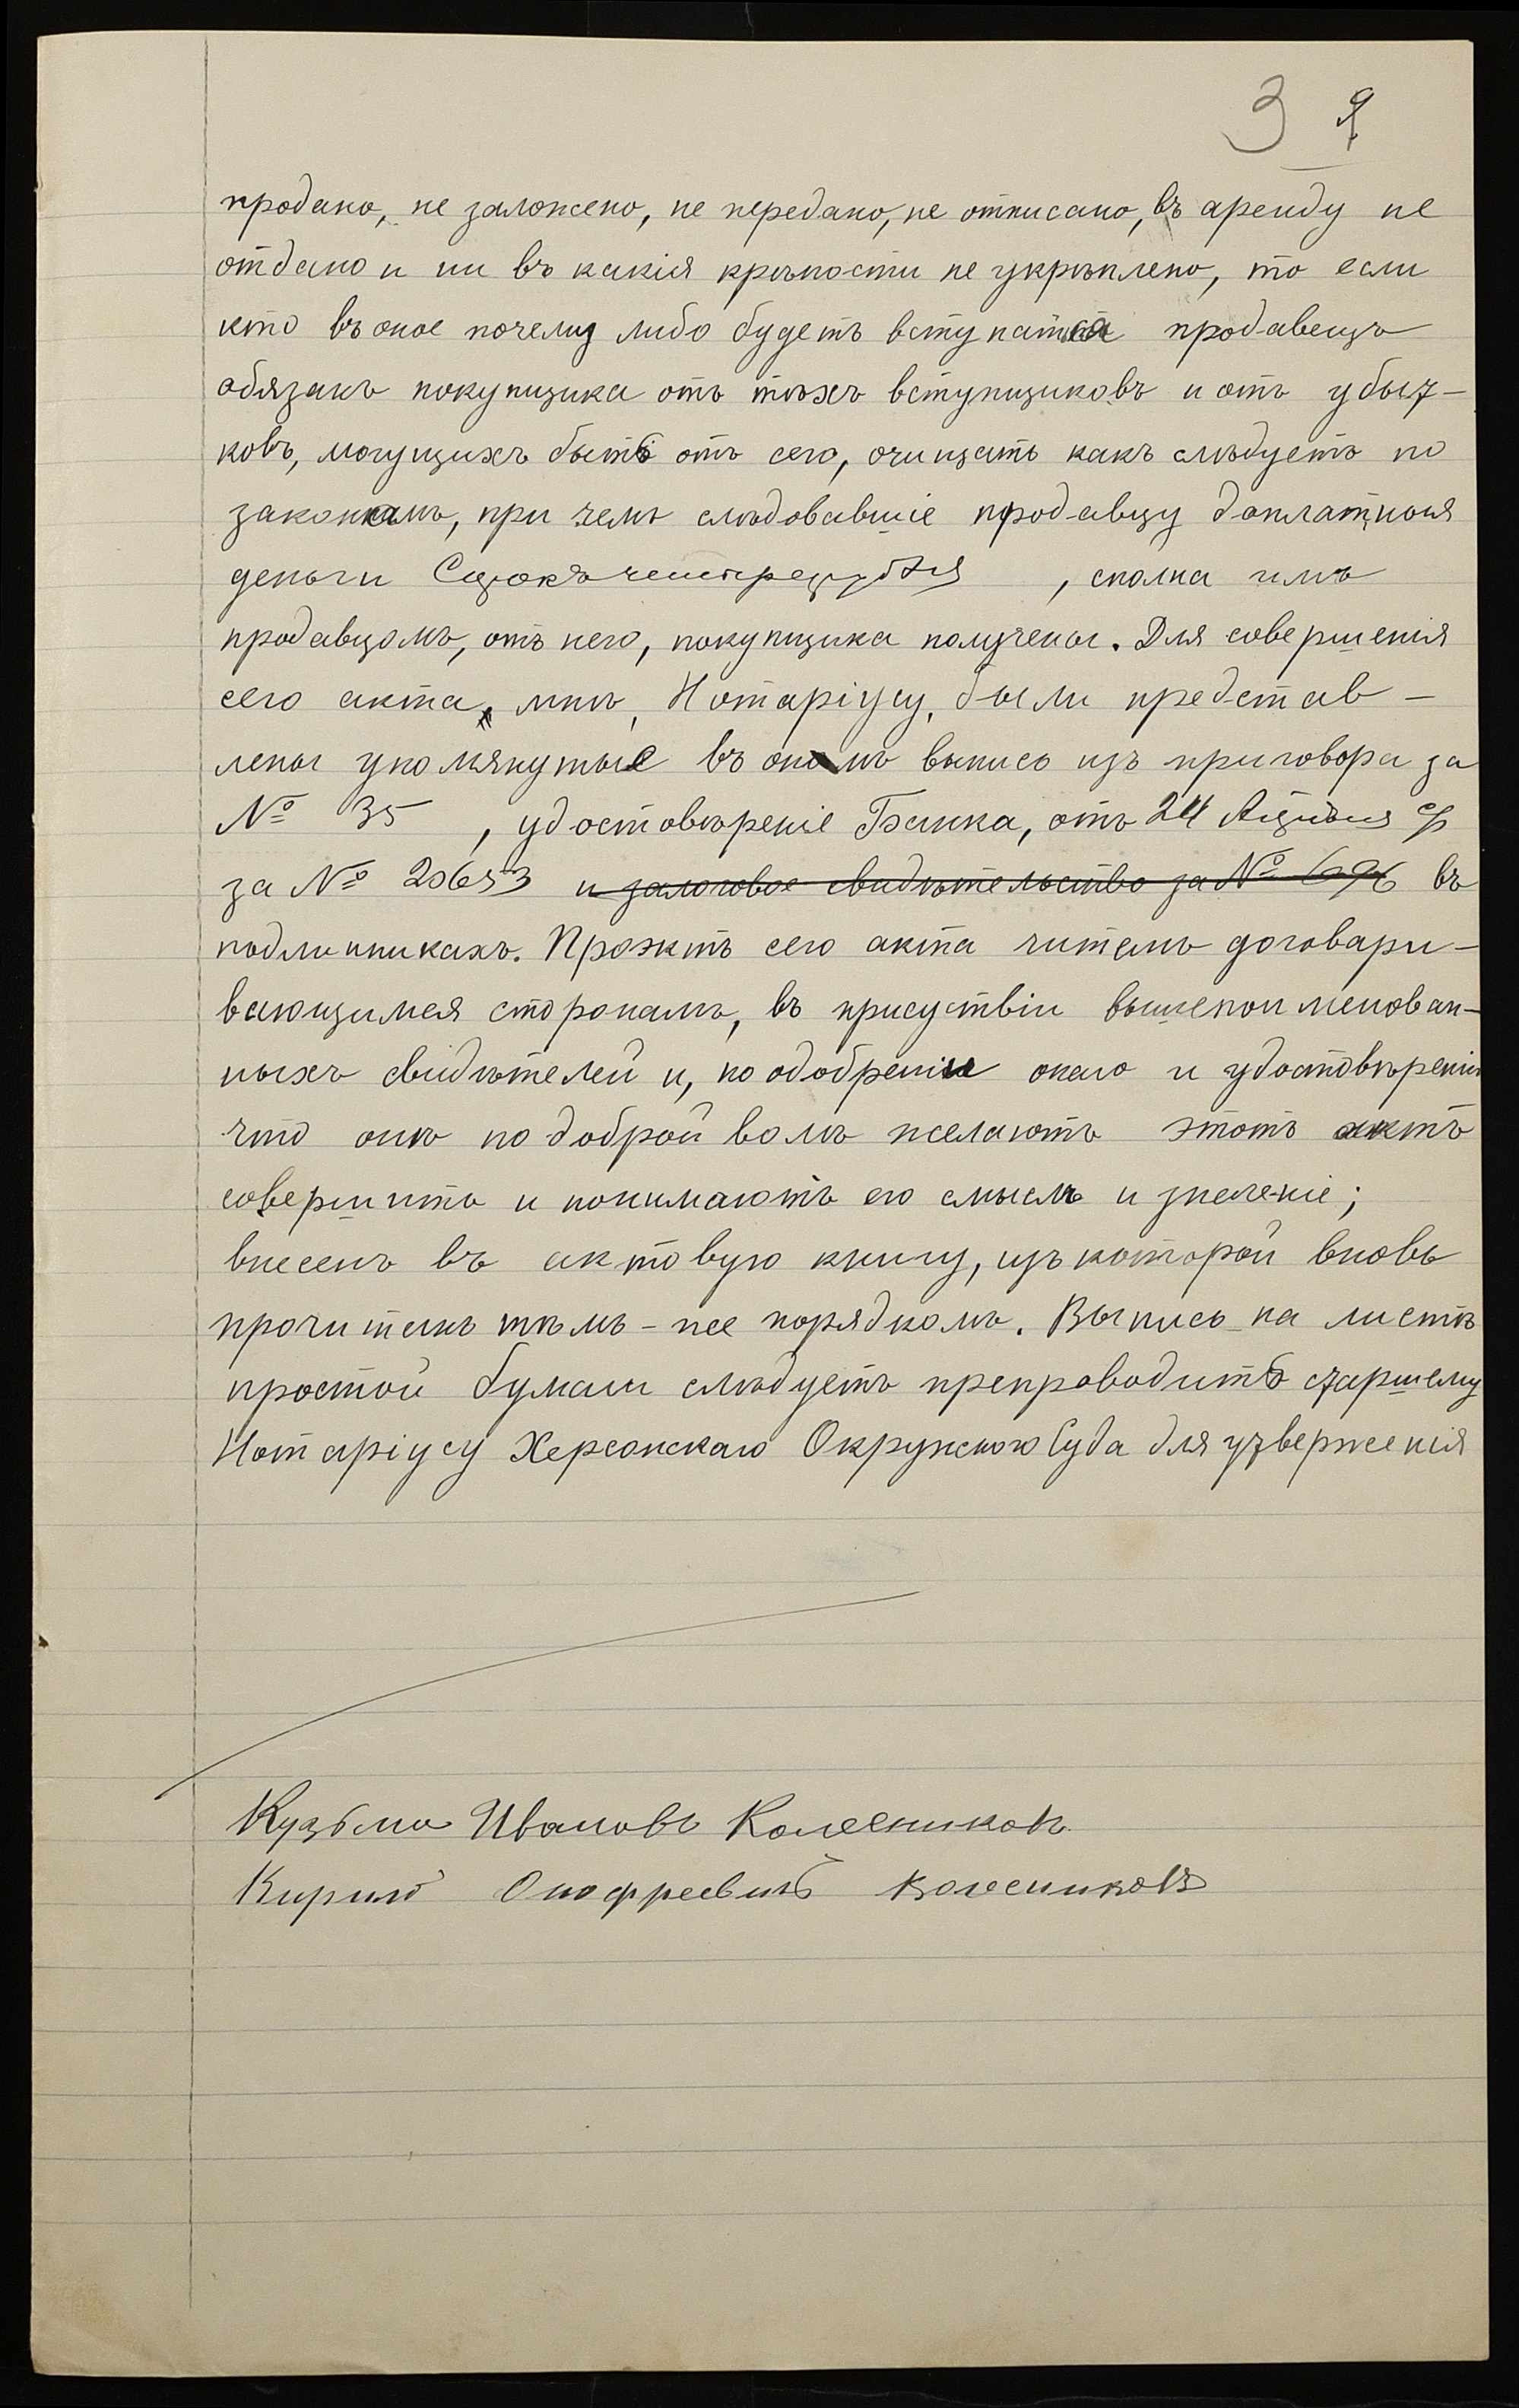 3 9
продано, не заложено, не передано, не отписано, въ аренду не
отдано и ни въ какія крѣпости не укрѣплено, то если
кто въ оное почему либо будетъ вступаться продавецъ
обязанъ покупщика отъ тѣхъ вступщиковъ и отъ убыт-
ковъ, могущихъ быть отъ сего, очищать какъ слѣдуетъ по
законамъ, при чемъ слѣдовавшіе продавцу доплатныя
деньги Сорокъ четыре рубля, сполна имъ
продавцомъ, отъ него, покупщика получены. Для совершенія
сего акта, мнѣ, Нотаріусу, были представ-
лены упомянутые въ ономъ выпись изъ приговора за
№ 35, удостовѣреніе Банка, отъ 24 Апрѣля с/г
за № 20653 и залоговое свидѣтельство за № 696 въ
подлинникахъ. Проэктъ сего акта читанъ договари-
вающимся сторонамъ, въ присуствіи вышепоименован-
ныхъ свидѣтелей и, по одобреніи онаго и удостовѣреніи
что они по доброй волѣ желаютъ этотъ актъ
совершить и понимаютъ его смыслъ и значеніе;
внесенъ въ актовую книгу, изъ которой вновь
прочитанъ тѣмъ-же порядкомъ. Выпись на листѣ
простой бумаги слѣдуетъ препроводить старшему
Нотаріусу Херсонскаго Окружного Суда для утверженія
Кузьма Ивановъ Колесниковъ
Кирило Онофреевичъ Колесниковъ